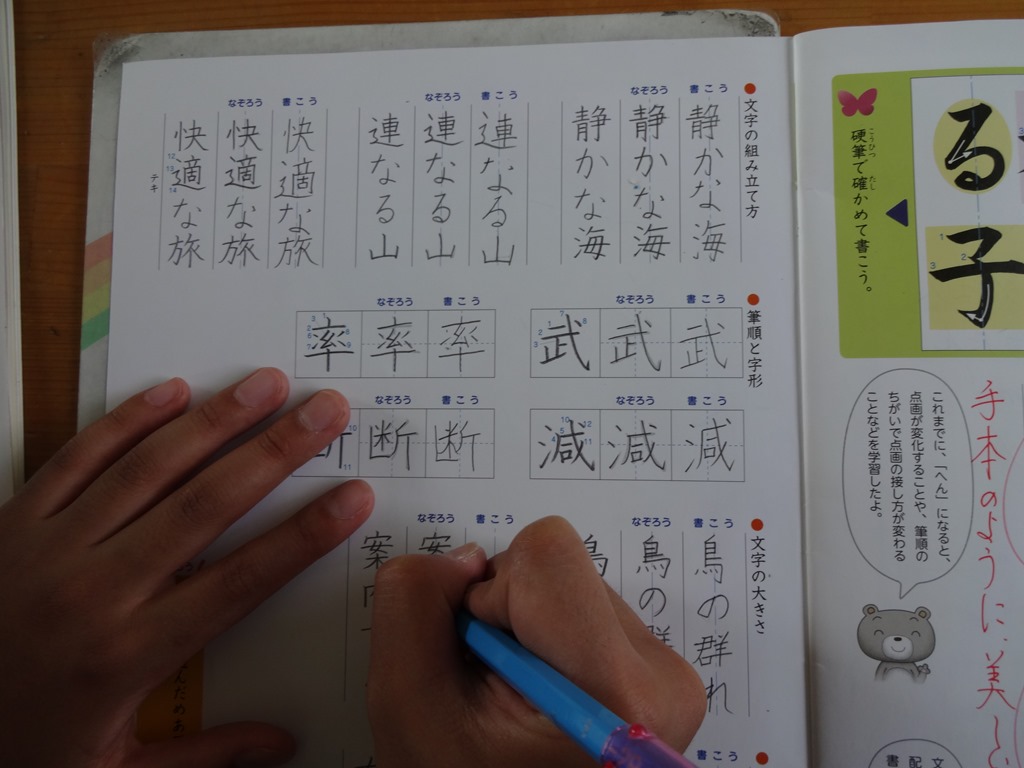 る
子
硬筆で確かめて書こう。
こうひつ
たし
これまでに、「へん」になると、
点画が変化することや、筆順の
ちがいで点画の接し方が変わる
ことなどを学習したよ。
手本のように、美し
文字の組み立て方
書こう
静かな海
なぞろう
静かな海
静かな海
書こう
連なる山
なぞろう
連なる山
連なる山
書こう
快適な旅
なぞろう
快適な旅
快適な旅
テキ
筆順と字形
書こう
武
なぞろう
武
武
書こう
率
なぞろう
率
率
書こう
減
なぞろう
減
減
書こう
断
なぞろう
断
文字の大きさ
書こう
鳥の群れ
なぞろう
鳥の群
鳥
書こう
なぞろう
案
案
書こう